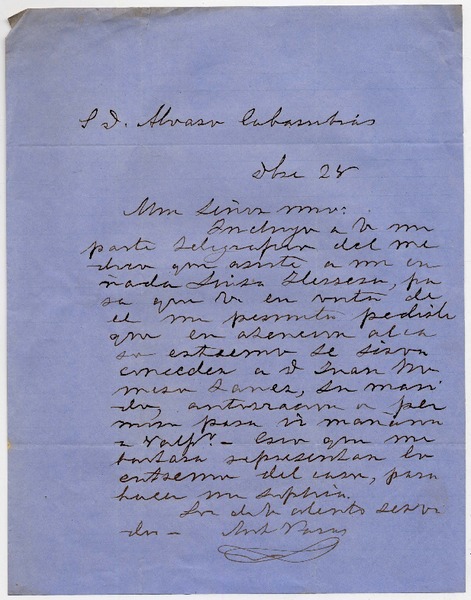 S D. Alvaro Cobarrubias
Dbre 28
Muy Señor mio:
Incluyo a V un
parte telegrafico del me
dico que asiste a mi cu
ñada Luisa Herrera, pa
ra que V en vista de
el me permita pedirle
que en atencion al ca
so estremo se sirva
conceder a D Juan
Ianez, su mari
do, autorizacion o per
miso para ir mañana
a Valpo. - Creo que me
bastara representar lo
estremo del caso, para
hacer mi suplica.
Soi de V atento servi
dor - Ant Varas